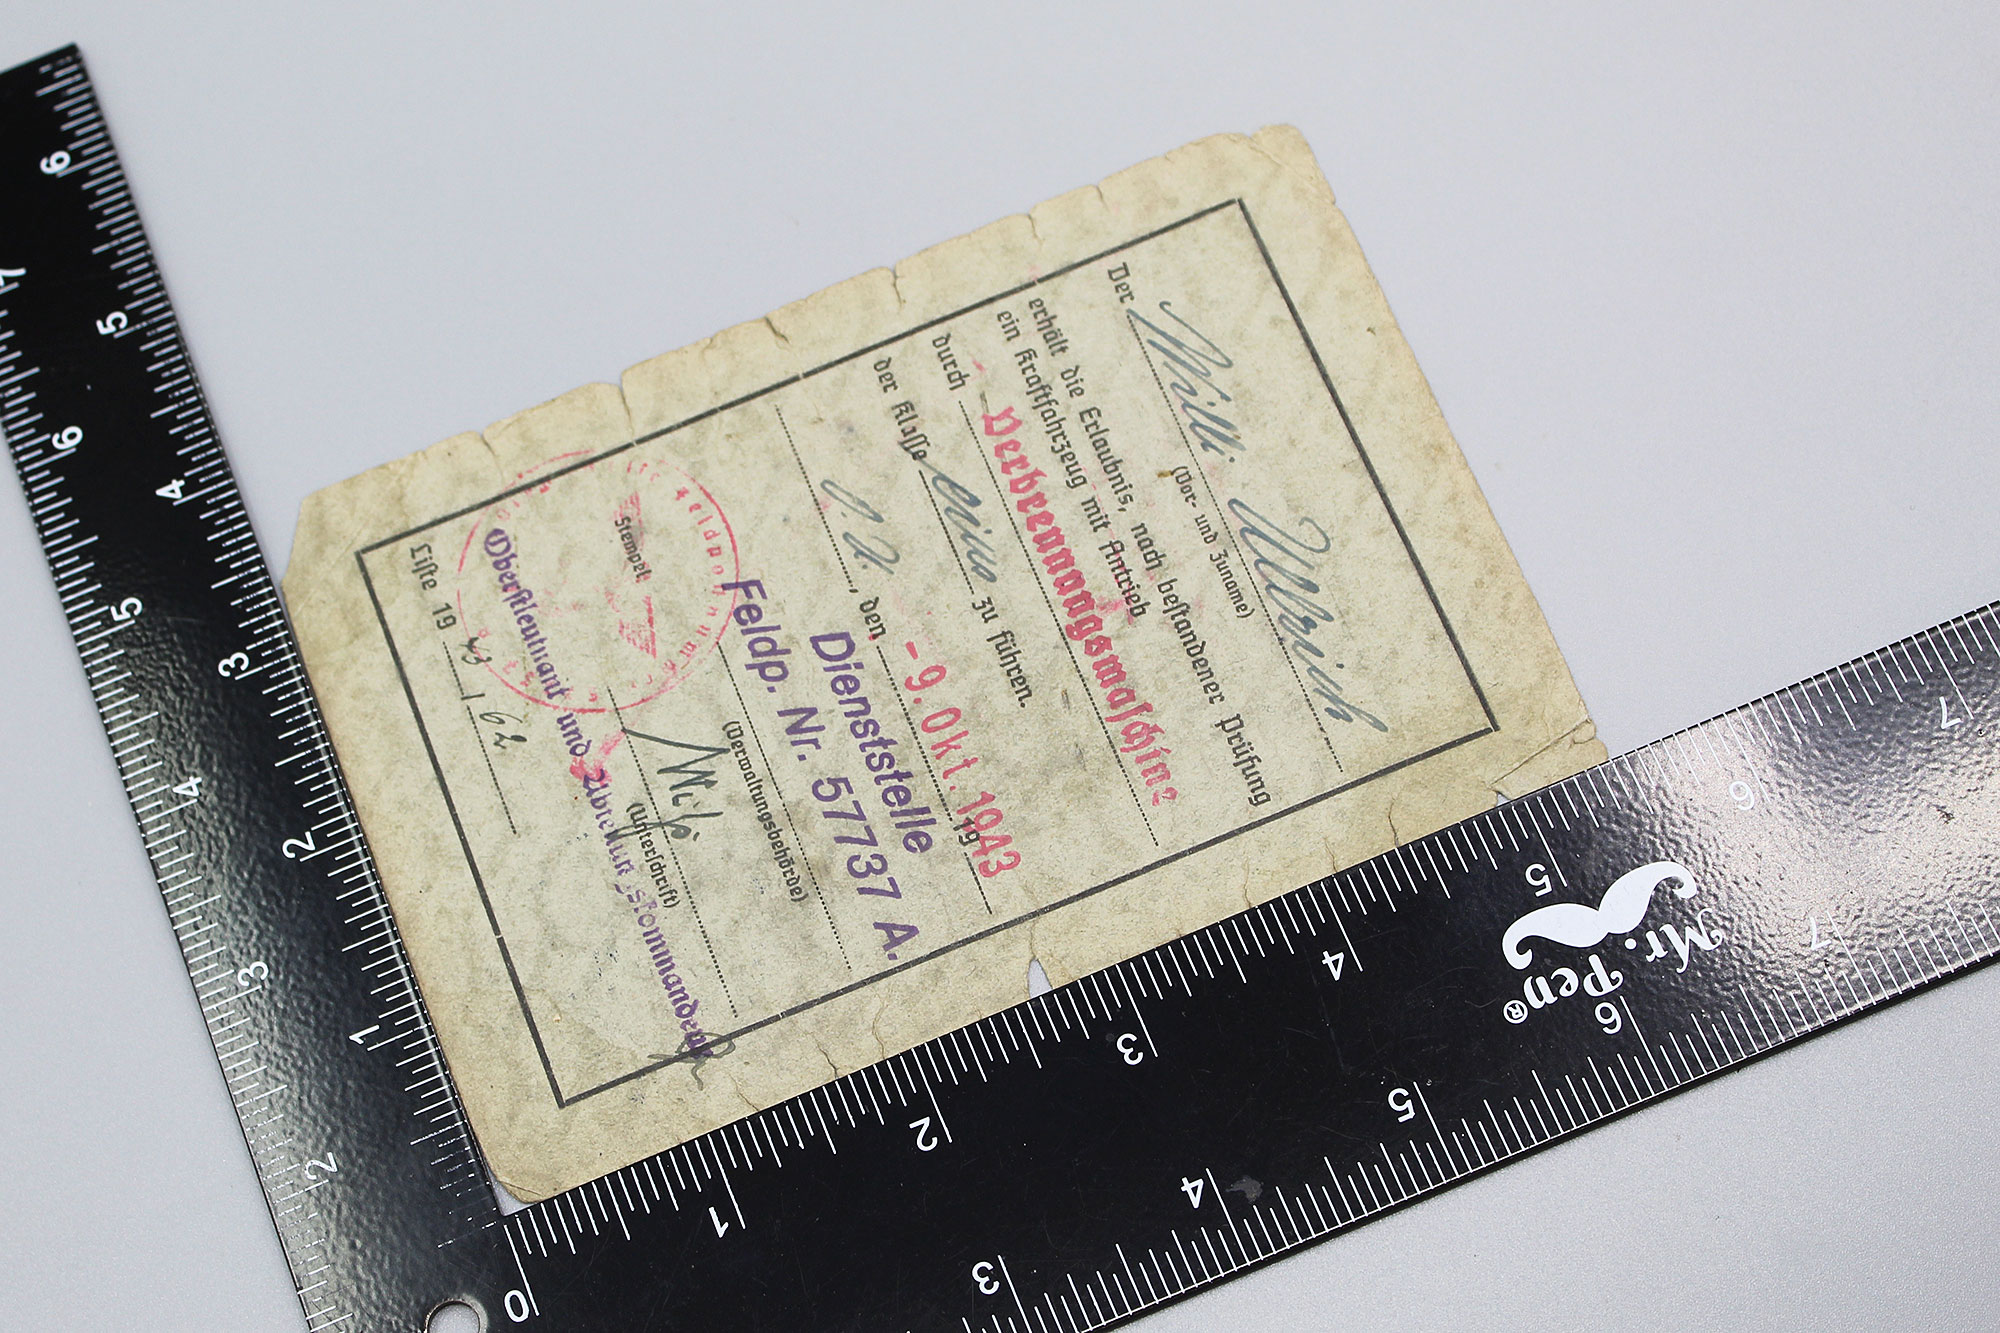 Der Willi Ullrich
(Vor- und Zuname)
erhält die Erlaubnis, nach bestandener Prüfung
ein Kraftfahrzeug mit Antrieb
durch Verbrennungsmaschine
der Klasse eins zu führen.
, den - 9. Okt. 1943
19
Dienststelle
Feldp. Nr. 57737 A.
(Verwaltungsbehörde)
Stempel
(Unterschrift)
Oberstleutnant und Abteilungskommandeur
Liste 19 43 / 62
0 1 2 3 4 5 6
3 4 5 6 7
1 2 3 4 5 6
2 3 4 5 6 7
Mr. Pen®